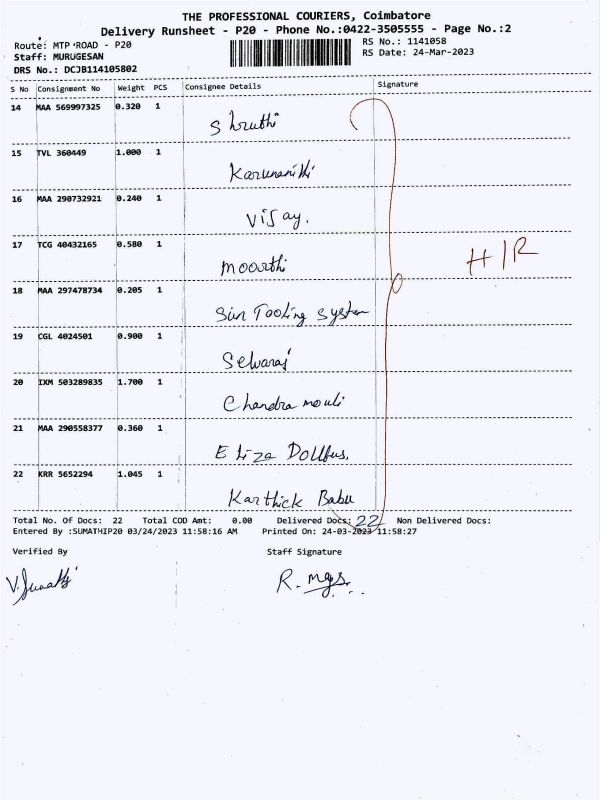 THE PROFESSIONAL COURIERS, Coimbatore
Delivery Runsheet - P20 - Phone No.:0422-3505555 - Page No.:2
Route: MTP ROAD - P20
RS No.: 1141058
Staff: MURUGESAN
RS Date: 24-Mar-2023
DRS No.: DCJB114105802
S No Consignment No Weight PCS Consignee Details Signature
14 MAA 569997325 0.320 1
Shruthi
15 TVL 360449 1.000 1
Karunanithi
16 MAA 290732921 0.240 1
Vijay.
17 TCG 40432165 0.580 1
Moorthi
H/R
18 MAA 297478734 0.205 1
Sun Tooling System
19 CGL 4024501 0.900 1
Selvaraj
20 IXM 503289835 1.700 1
Chandra mouli
21 MAA 290558377 0.360 1
Eliza Dollfus.
22 KRR 5652294 1.045 1
Karthick Babu
Total No. Of Docs: 22 Total COD Amt: 0.00 Delivered Docs: 22 Non Delivered Docs:
Entered By :SUMATHIP20 03/24/2023 11:58:16 AM Printed On: 24-03-2023 11:58:27
Verified By Staff Signature
V. Sumathi R. mgs.